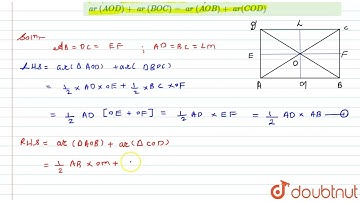 ar (AOD) + ar (BOC) = ar (AOB) + ar(COD)
Soln-
AB = DC = EF ; AD = BC = LM
LHS = ar(△AOD) + ar(△BOC)
= 1/2 × AD × OE + 1/2 × BC × OF
= 1/2 AD [OE + OF] = 1/2 AD × EF = 1/2 AD × AB
RHS = ar(△AOB) + ar(△COD)
= 1/2 AB × OM +
D L C
E O F
A M B
doubtnut